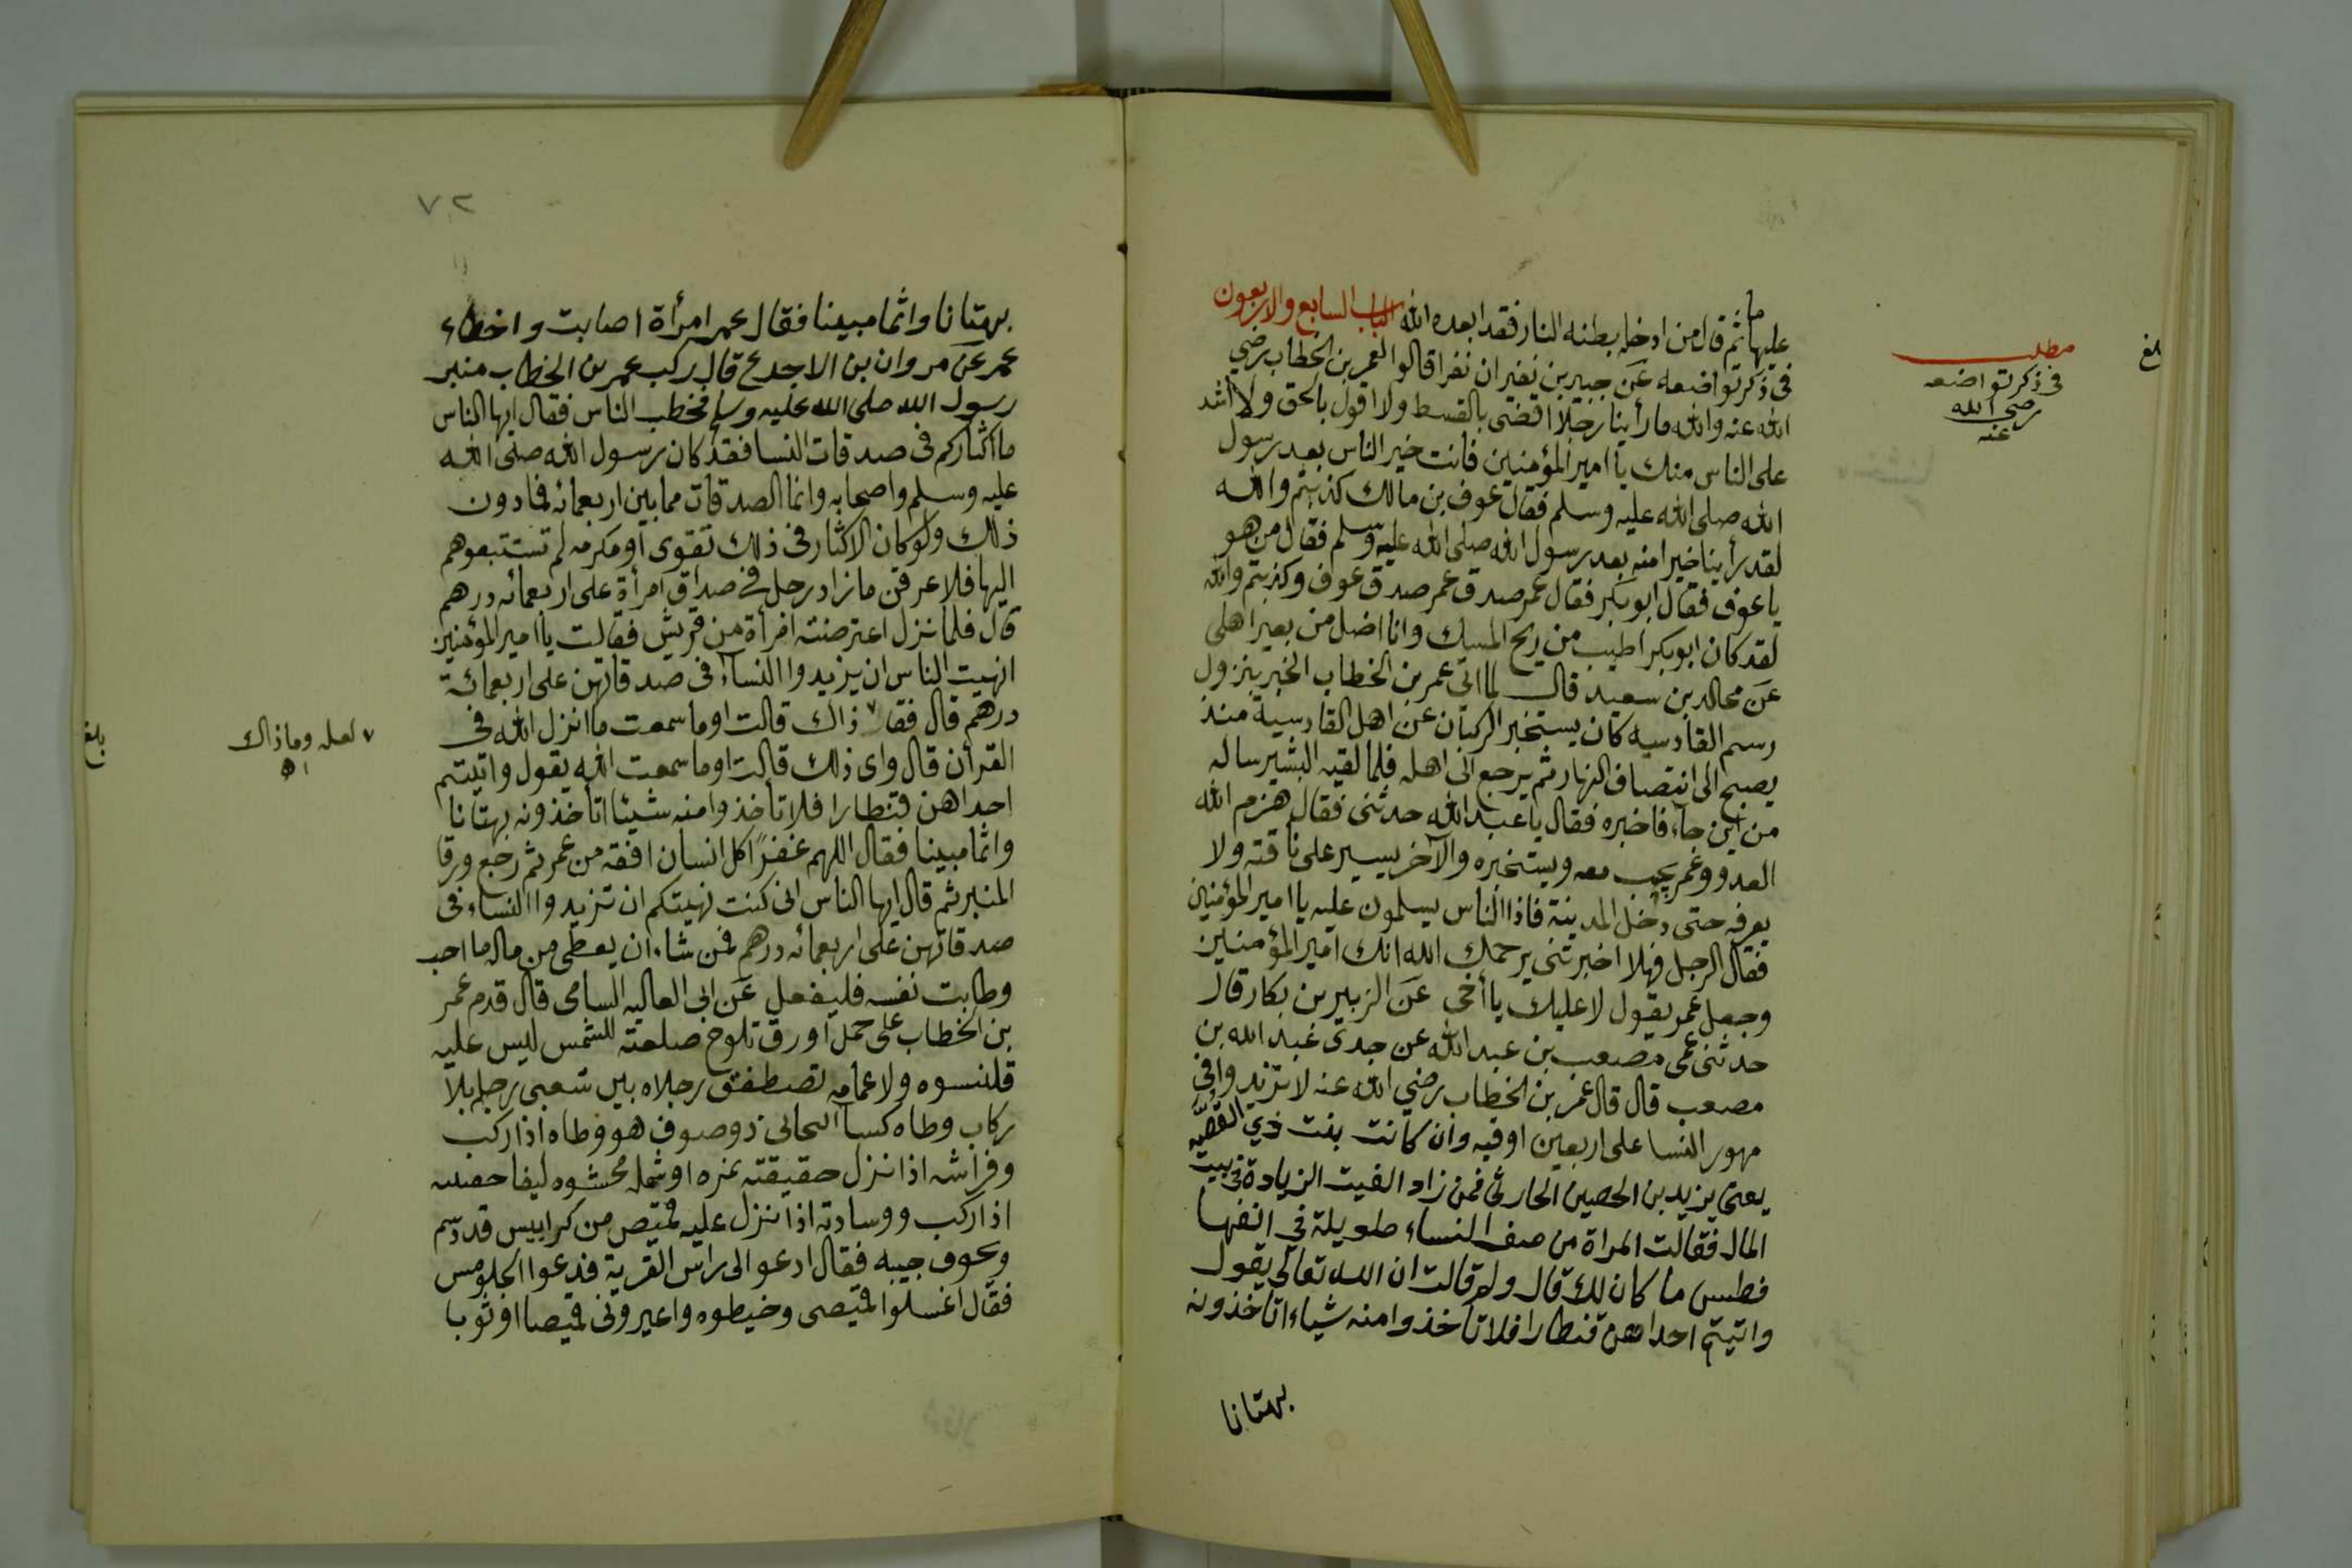 ما
عليها ثم قال من ادخل بطنه النار فقد ابعده الله الباب السابع والاربعون
فى ذكر تواضعه عن جبير بن نفير ان نفرا قالوا لعمر بن الخطاب رضي
الله عنه والله ما رأينا رجلا اقضى بالقسط ولا اقول بالحق ولا اشد
على الناس منك يا امير المؤمنين فانت خير الناس بعد رسول
الله صلى الله عليه وسلم فقال عوف بن مالك كذبتم والله
لقد رأينا خيرا منه بعد رسول الله صلى الله عليه وسلم فقال من هو
يا عوف فقال ابو بكر فقال عمر صدق عمر صدق عوف وكذبتم والله
لقد كان ابو بكر اطيب من ريح المسك وانا اضل من بعير اهلى
عن مجالد بن سعيد قال لما اتى عمر بن الخطاب الخبر بنزول
رسم القادسيه كان يستخبر الركبان عن اهل القادسية منذ
يصبح الى انتصاف النهار ثم يرجع الى اهله فلما لقيه البشير ساله
من اين جاء فاخبره فقال يا عبد الله حدثنى فقال هزم الله
العدو وعمر يجب معه ويستخبره والآخر يسير على ناقته ولا
يعرفه حتى دخل المدينة فاذا الناس يسلمون عليه يا امير المؤمنين
فقال الرجل فهلا اخبرتنى يرحمك الله انك امير المؤمنين
وجعل عمر يقول لا عليك يا أخى عن الزبير بن بكار قال
حدثنى عمى مصعب بن عبد الله عن جدى عبد الله بن
مصعب قال قال عمر بن الخطاب رضي الله عنه لا تزيدوا فى
مهور النسا على اربعين اوقيه وان كانت بنت ذي القصه
يعنى يزيد بن الحصين الحارثى فمن زاد القيت الزيادة فى بيت
المال فقالت امراة من صف النساء طويلة في انفها
فطس ما كان لك قال ولم قالت ان الله تعالى يقول
واتيتم احداهن قنطارا فلا تأخذوا منه شياء اتأخذونه
بهتانا
مطلب
فى ذكر تواضعه
رضى الله
عنه
بلغ
٧٢
بهتانا واثما مبينا فقال عمر امرأة اصابت واخطاء
عمر عن مروان بن الاجدع قال ركب عمر بن الخطاب منبر
رسول الله صلى الله عليه وسلم فخطب الناس فقال ايها الناس
ما اكثاركم فى صدقات النسا فقد كان رسول الله صلى الله
عليه وسلم واصحابه وانما الصدقات مما بين اربعمائه فما دون
ذلك ولو كان الاكثار فى ذلك تقوى او مكرمه لم تستبقوهم
اليها فلا عرفن ما زاد رجل فى صداق امرأة على اربعمائه درهم
قال فلما نزل اعترضته امرأة من قريش فقالت يا امير المؤمنين
انهيت الناس ان يزيدوا النساء فى صدقاتهن على اربعمائة
درهم قال فقا٧ ذاك قالت اوما سمعت ما انزل الله فى
القرأن قال واى ذلك قالت اوما سمعت الله يقول واتيتم
احداهن قنطارا فلا تأخذوا منه شيئا اتأخذونه بهتانا
واثما مبينا فقال اللهم غفرًا كل انسان افقه من عمر ثم رجع ورقا
المنبر ثم قال ايها الناس انى كنت نهيتكم ان تزيدوا النساء فى
صدقاتهن على اربعمائه درهم فمن شاء ان يعطى من ماله ما احب
وطابت نفسه فليفعل عن ابى العاليه السامى قال قدم عمر
بن الخطاب على جمل اورق تلوح صلعته للشمس ليس عليه
قلنسوه ولا عمامه تصطفق رجلاه بين شعبى رحله بلا
ركاب وطاه كسا انبحانى ذو صوف هو وطاه اذا ركب
وفراشه اذا نزل حقيقته نمره او شمله محشوه ليفا
اذا ركب ووسادته اذا نزل عليه قميص من كرابيس قد دسم
وبحوف جيبه فقال ادعو الى راس القرية فدعوا الجلومس
فقال اغسلوا قميصى وخيطوه واعيرونى قميصا او ثوبا
٧ لعله وما ذاك
اه
بلغ